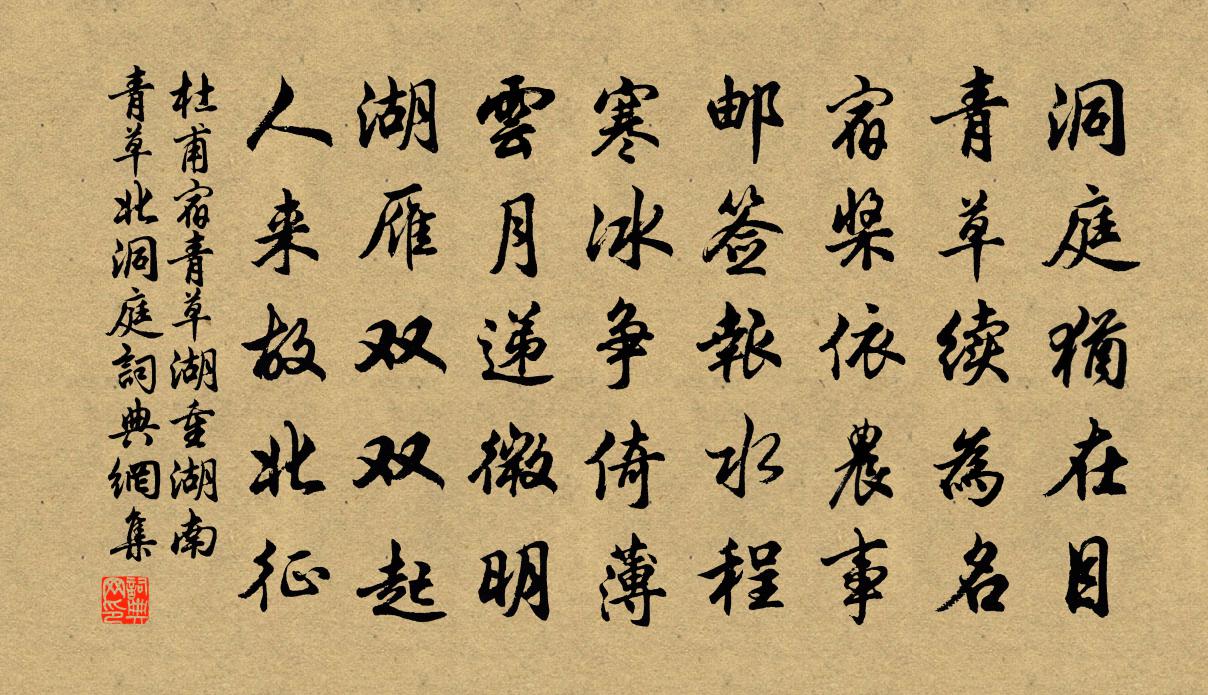 洞庭猶在目
青草续為名
宿桨依農事
邮签報水程
寒冰争倚薄
雲月递微明
湖雁双双起
人来故北征
杜甫宿青草湖重湖南
青草北洞庭詞典網集
詞典网印